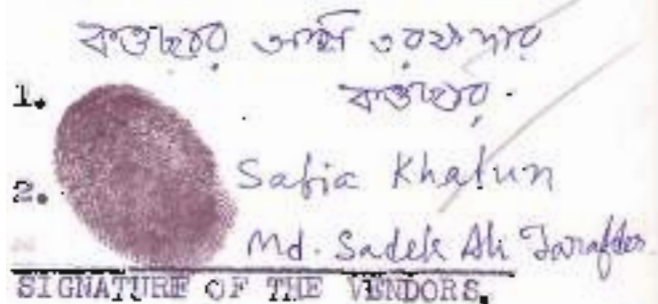 আলি তরফদার
1.
Safia Khatun
2.
Md. Sadek Ali Tarafder
SIGNATURE OF THE VENDORS.